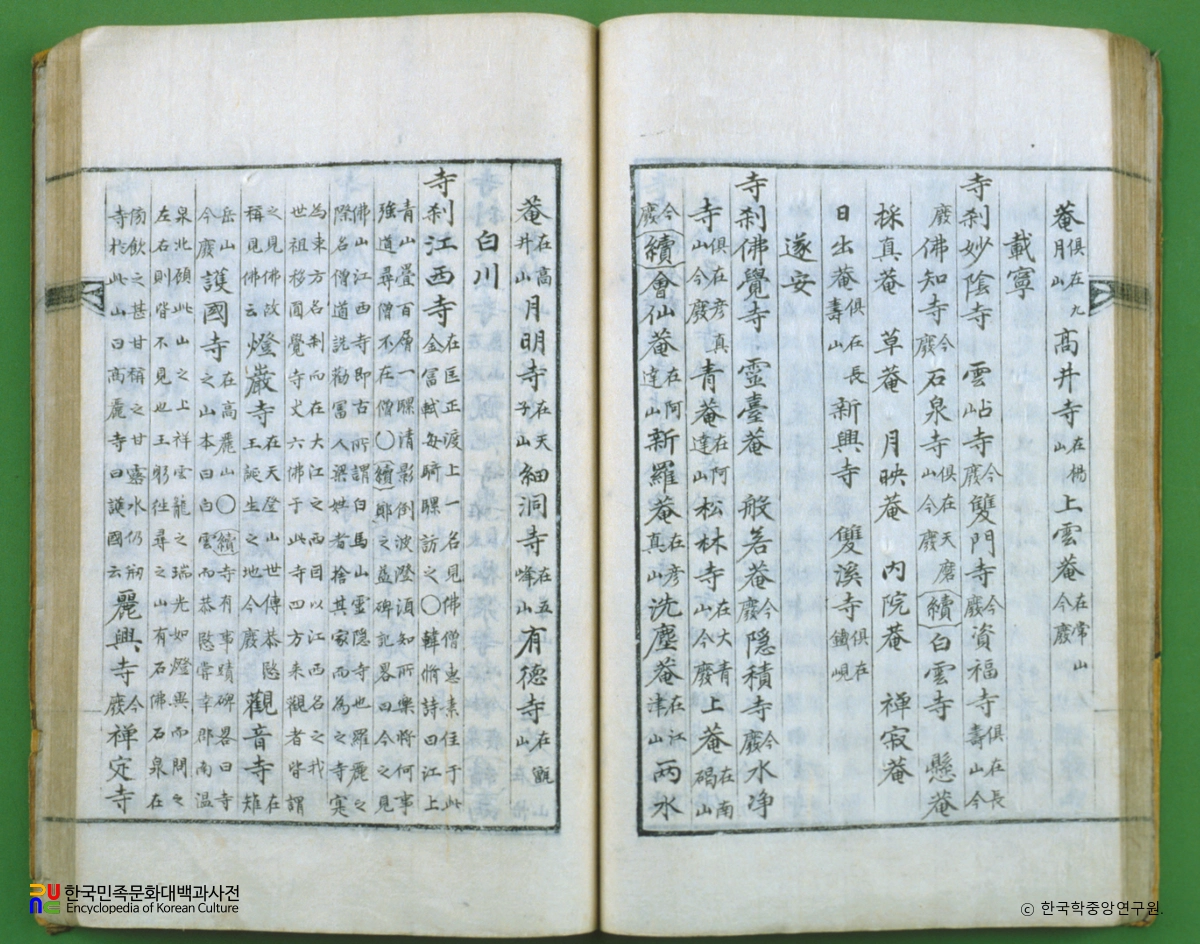 菴俱在九月山 高井寺在楊山 上雲菴在常山今廢
載寧
寺刹妙陰寺 雲岾寺今廢 雙門寺今廢 資福寺俱在長壽山今
廢 佛知寺今廢 石泉寺俱在天磨山今廢 續 白雲寺 懸菴
採真菴 草菴 月映菴 內院菴 禅寂菴
日出菴俱在長壽山 新興寺 雙溪寺俱在鐵峴
遂安
寺刹佛覺寺 靈臺菴 般若菴今廢 隱積寺今廢 水净
寺俱在彦真山今廢 青菴在阿達山 松林寺在大青山今廢 上菴在南碣山
今廢 續 會仙菴在阿達山 新羅菴在彦真山 洗塵菴在江津山 兩水
菴在高井山 月明寺在天子山 細洞寺在五峰山 有德寺在甑山
白川
寺刹江西寺在匡正渡上一名見佛僧惠素住于此金富軾每騎騾訪之○韓脩詩曰江上
青山疊百層一騾清影倒波澄須知所樂將何事強道尋僧不在僧○續鄭之益碑記畧曰今之見
佛山江西寺即古所謂白馬山靈隐寺也羅麗之際名僧道詵勸富人梁姓者捨其家而為之寺寔
為東方名刹而在大江之西因以江西名之我世祖移圓覺寺丈六佛于此寺四方來觀者皆謂
之見佛故稱見佛云 燈巖寺在天登山世傳恭愍王誕生之地今廢 觀音寺在雉
岳山今廢 護國寺在高麗山○續寺有事蹟碑畧曰寺之山本曰白雲而恭愍嘗幸郡南温
泉北顧此山之上祥雲龍之瑞光如燈異而問之左右則皆不見也王躬往尋之山有石佛石泉在
傍飲之甚甘稱之甘露水仍剏寺於此山曰高麗寺曰護國云 麗興寺今廢 禅定寺
한국민족문화대백과사전
Encyclopedia of Korean Culture
© 한국학중앙연구원.